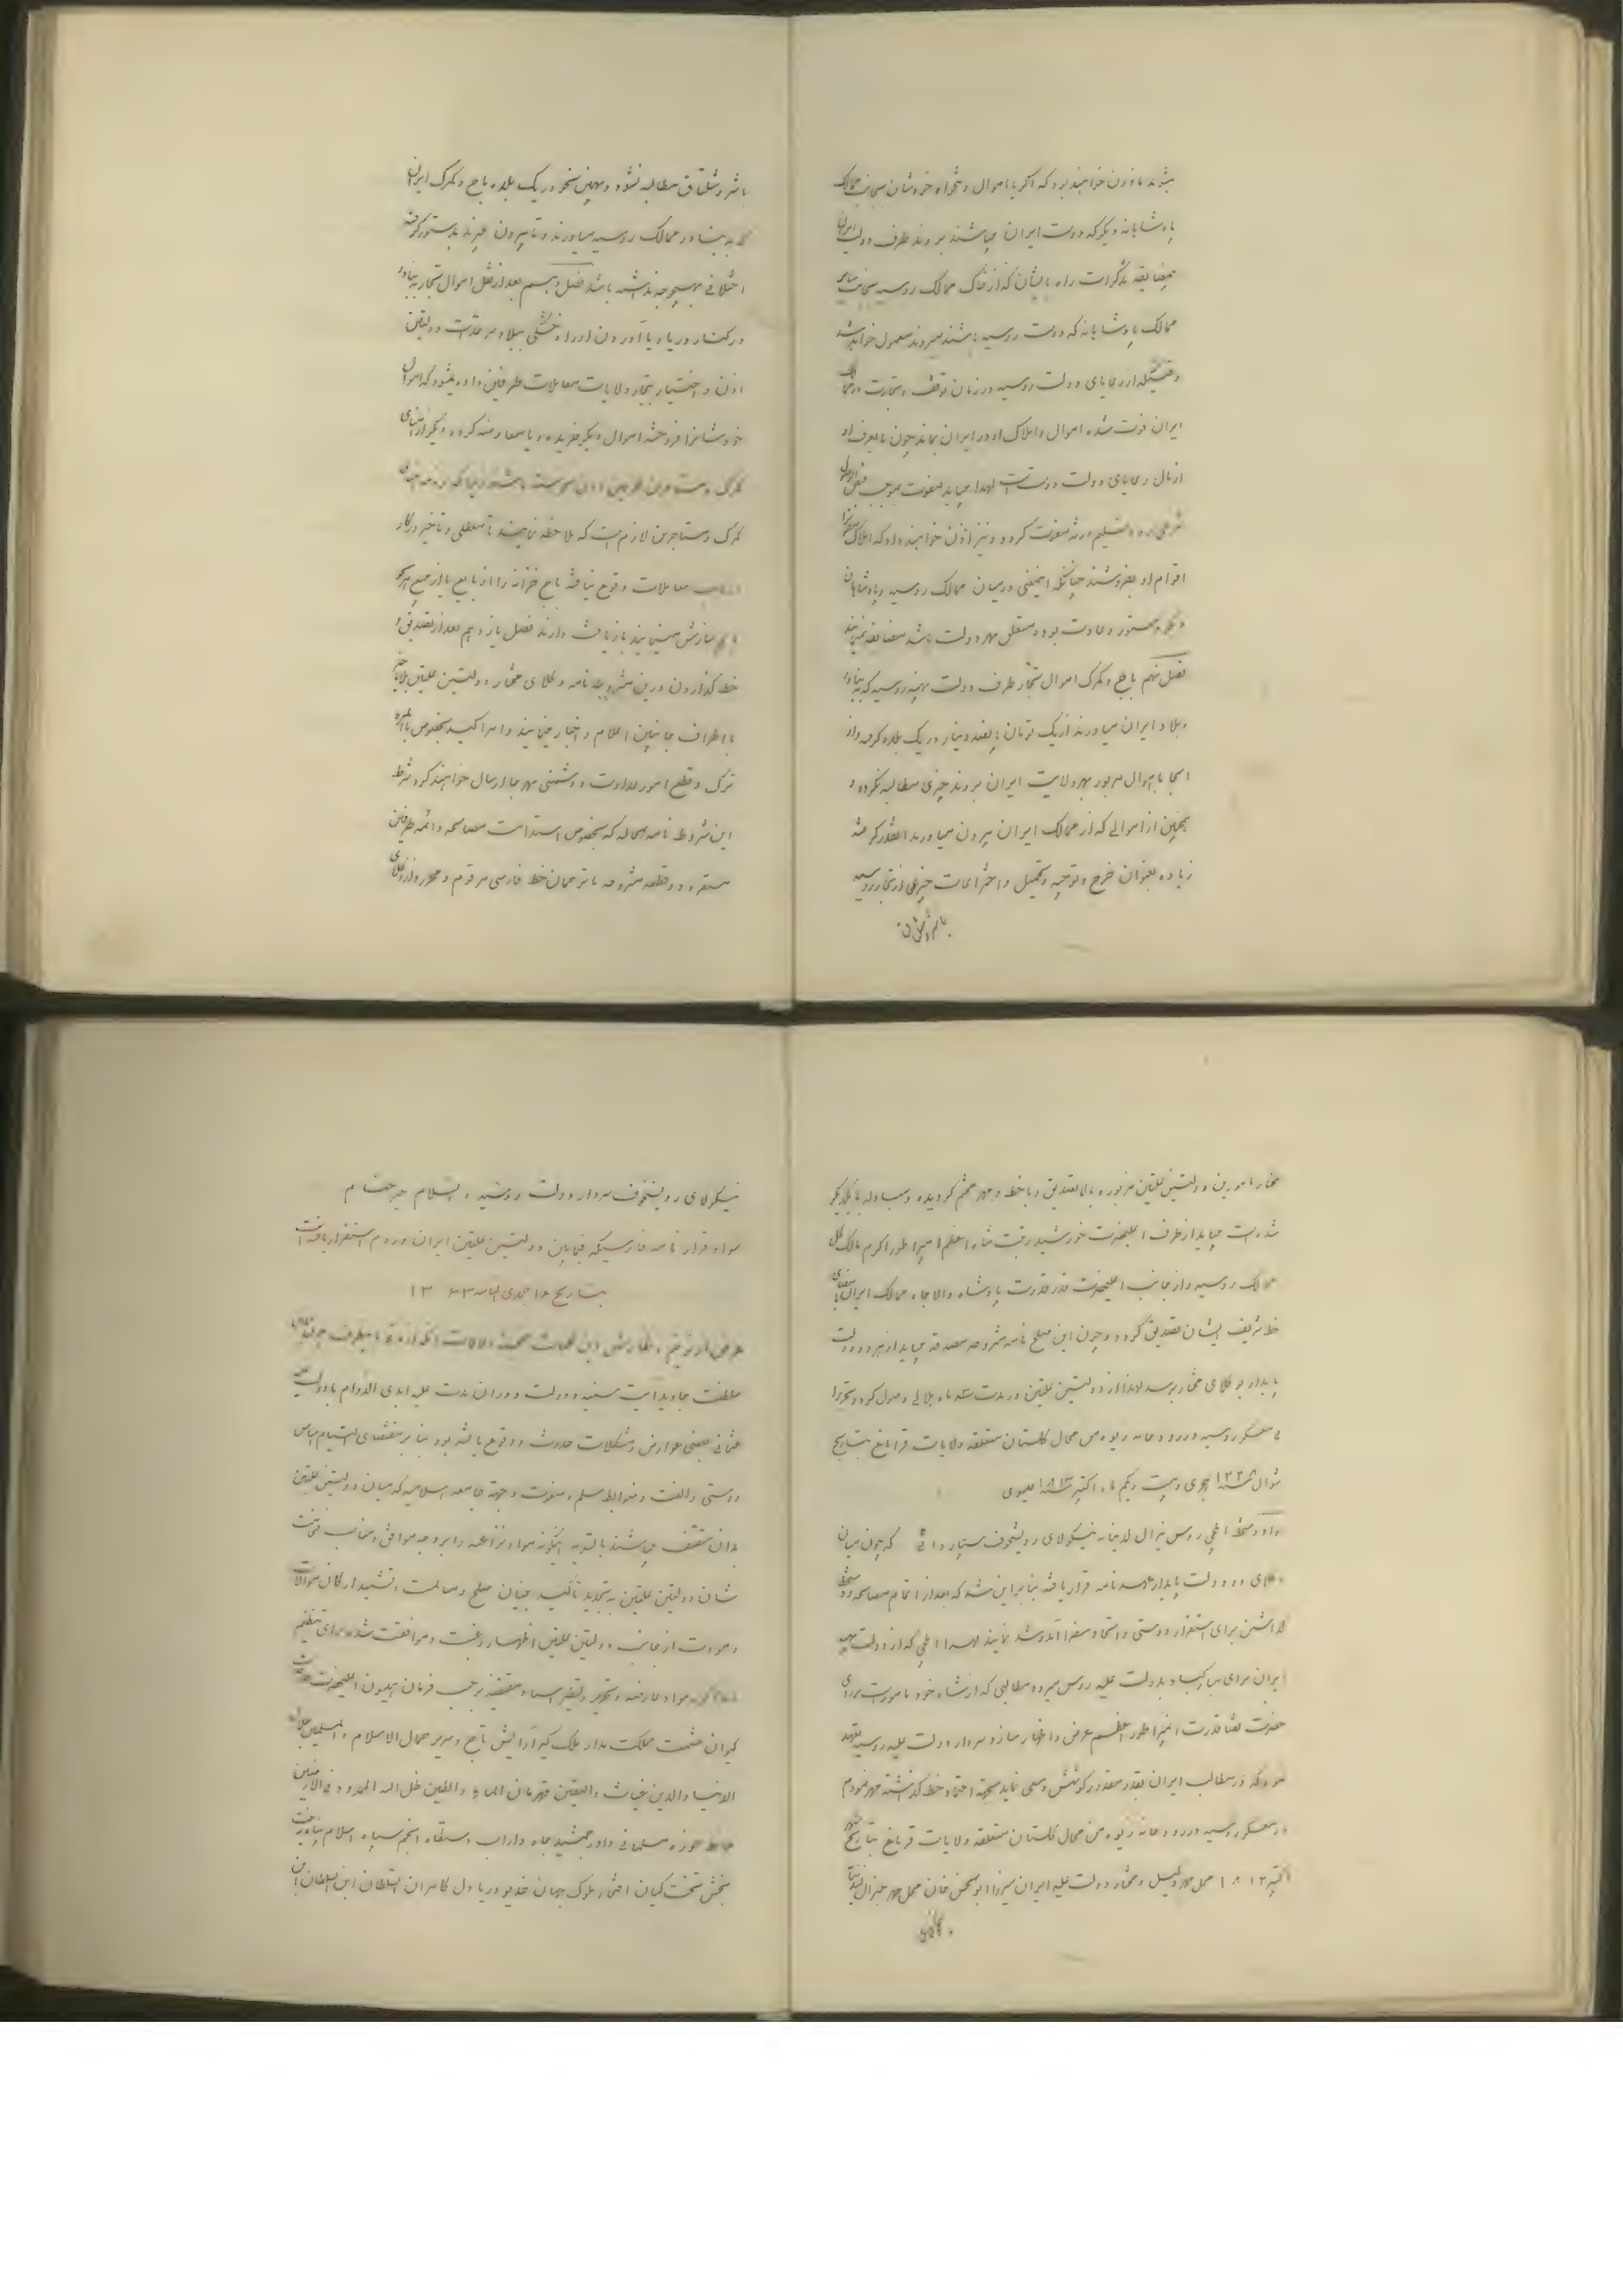 میشوند مأذون خواهند بود که اگر با اموال و تنخواه خودشان بجانب ممالک
پادشاهانه دیگر که دوست ایران میباشند بروند طرف دولت ایران
بیمضایقه تذکرات راه بایشان که از خاک ممالک روسیه بجانب سایر
ممالک پادشاهانه که دوست روسیه باشند میروند معمول خواهد شد
وقتیکه از رعایای دولت روسیه در زمان توقف و تجارت در ممالک
ایران فوت شده اموال و املاک او در ایران بماند چون مایعرف او
از مال رعایای دولت دوست است لهذا میباید مفوت بموجب قبض الوصول
شرعی رد و تسلیم ورثه مفوت گردد و نیز اذن خواهند داد که املاک مفوت را
اقوام او بفروشند چنانکه اینمعنی در میان ممالک روسیه و پادشاهان
دیگر دستور و عادت بوده متعلق بهر دولت باشد مضایقه نمینمایند
فصل نهم باج و گمرک اموال تجار طرف دولت بهیه روسیه که به بنادر
و بلاد ایران میآورند از یک تومان پانصد دینار در یک بلده گرفته و از
آنجا با اموال مزبور بهر ولایت ایران بروند چیزی مطالبه نگردد و
همچنین از اموالی که از ممالک ایران بیرون میآورند آنقدر گرفته
زیاده بعنوان خرج و توجیه و تحمیل و اختراعات چیزی از تجار روسیه
باشر و شلتاق
باشر و شلتاق مطالبه نشود و بهمین نحو در یک بلده باج و گمرک ایران
که به بنادر ممالک روسیه میآورند و تا بیرون میبرند بدستور گرفته
اختلافی بهیچوجه نداشته باشد فصل دهم بعد از نقل اموال تجار به بنادر
در کنار دریا و یا آوردن از راه خشکی ببلاد سرحدات دولتین
اذن و اختیار بتجار ولایات معاملات طرفین داده میشود که اموال
خودشانرا فروخته اموال دیگر خریده و یا معاوضه کرده دیگر از امنای
گمرک و مستاجرین لازم است که ملاحظه نمایند تا معطلی و تأخیر در کار
معاملات وقوع نیافته باج خزانه را از بایع یا از مبیع بهر نحو
سازش مینمایند بازیافت دارند فصل یازدهم بعد از تصدیق و
خط گذاردن درین مشروطه نامه وکلای مختار دولتین علیتین بلا تأخیر
باطراف جانبین اعلام و اخبار مینمایند و امر اکید بخصوص بالمره
ترک و قطع امور عداوت و دشمنی بهر جا ارسال خواهند کرد شرط
این شروط نامه الحاله که بخصوص استدامت مصالحه دائمه طرفین
مستقر و دو قطعه مشروحه با ترجمان خط فارسی مرقوم و محرر و از وکلای
مختار مأمورین دولتین علیتین مزبوره بالا تصدیق و با خط و مهر مختم گردیده و مبادله با یکدیگر
شده است میباید از طرف اعلیحضرت خورشید رتبت شاه اعظم امپراطور اکرم مالک کل
ممالک روسیه و از جانب اعلیحضرت قدر قدرت پادشاه والاجاه ممالک ایران بامضای
خط شریف ایشان تصدیق گردد و چون این صلح نامه مشروحه مصدقه میباید از هر دو دولت
پایدار بوکلای مختار برسد لهذا از دولتین علیتین در مدت سه ماه هلالی وصول گردد تحریرا
فی معسکر روسیه در رودخانه زیوه من محال گلستان متعلقه ولایات قراباغ بتاریخ
شوال ۱۲۲۸ هجری و بیست و یکم ماه اکتبر ۱۸۱۳ عیسوی
سواد دستخط ایلچی روس نیرال لدینانت نیکولای رویشخوف که چون میان
دولت پایدار عهدنامه قرار یافته بنا براین شد که بعد از اتمام مصالحه و دستخط
گذاشتن برای استقرار دوستی و اتحاد سفرا آمد و شد نمایند لهذا ایلچی که از دولت بهیه
ایران برای مبارکباد بدولت علیه روس میرود مطالبی که از شاه خود مأمور است برای
حضرت قضا قدرت ایمپراطور اعظم عرض و اظهار سازد سردار دولت علیه روسیه تعهد
نمود که در مطالب ایران بقدر مقدور کوشش و سعی نماید بجهة اعتماد خط گذشته مهر نمودم
در معسکر روسیه در رودخانه زیوه من محال گلستان متعلقه ولایات قراباغ بتاریخ شهر
اکتبر ۱۸۱۳ محل مهر وکیل و مختار دولت علیه ایران میرزا ابوالحسن خان محل مهر جنرال لدینانت
نیکولای
نیکولای رویشخوف سردار دولت روسیه والسلام خیر ختام
سواد قرار نامه فارسیکه فیمابین دولتین علیتین ایران و روم استقرار یافته است
بتاریخ ۱۸ جمدی الثانیه ۱۲۶۳
غرض از ترقیم و نگارش این کلمات صحیحة الدلالات آنکه از مدتی باینطرف چون فیمابین
سلطنت جاوید آیت سنیه و دولت دوران مدت علیه ابدی الدوام با دولت علیه
عثمانی بعضی عوارض و مشکلات حدوث و وقوع یافته بود بنا بر مقتضای التیام اساس
دوستی و الفت و ضوابط سلم و صفوت و جهة جامعه اسلامیه که میان دولتین علیتین
بدان متصف میباشند بالسویه اینگونه مواد نزاعیه را بر وجه موافق و مناسب
شان دولتین علیتین به تجدید تأکید بنیان صلح و مسالمت و تشیید ارکان موالات
و مودت از جانب دولتین علیتین اظهار رغبت و موافقت شده برای تنظیم
مواد عارضه و تحریر و تسطیر اسناد مقتضیه برحسب فرمان همایون اعلیحضرت
کیوان حشمت مملکت مدار ملک گیر آرایش تاج و سریر جمال الاسلام والمسلمین جلال
الدنیا والدین غیاث الحق والیقین قهرمان الماء والطین ظل الله الممدود فی الارضین
حافظ حوزه مسلمانی داور جمشید جاه داراب دستگاه انجم سپاه اسلام پناه زینت
بخش تخت کیان افتخار ملوک جهان خدیو دریا دل کامران السلطان ابن السلطان